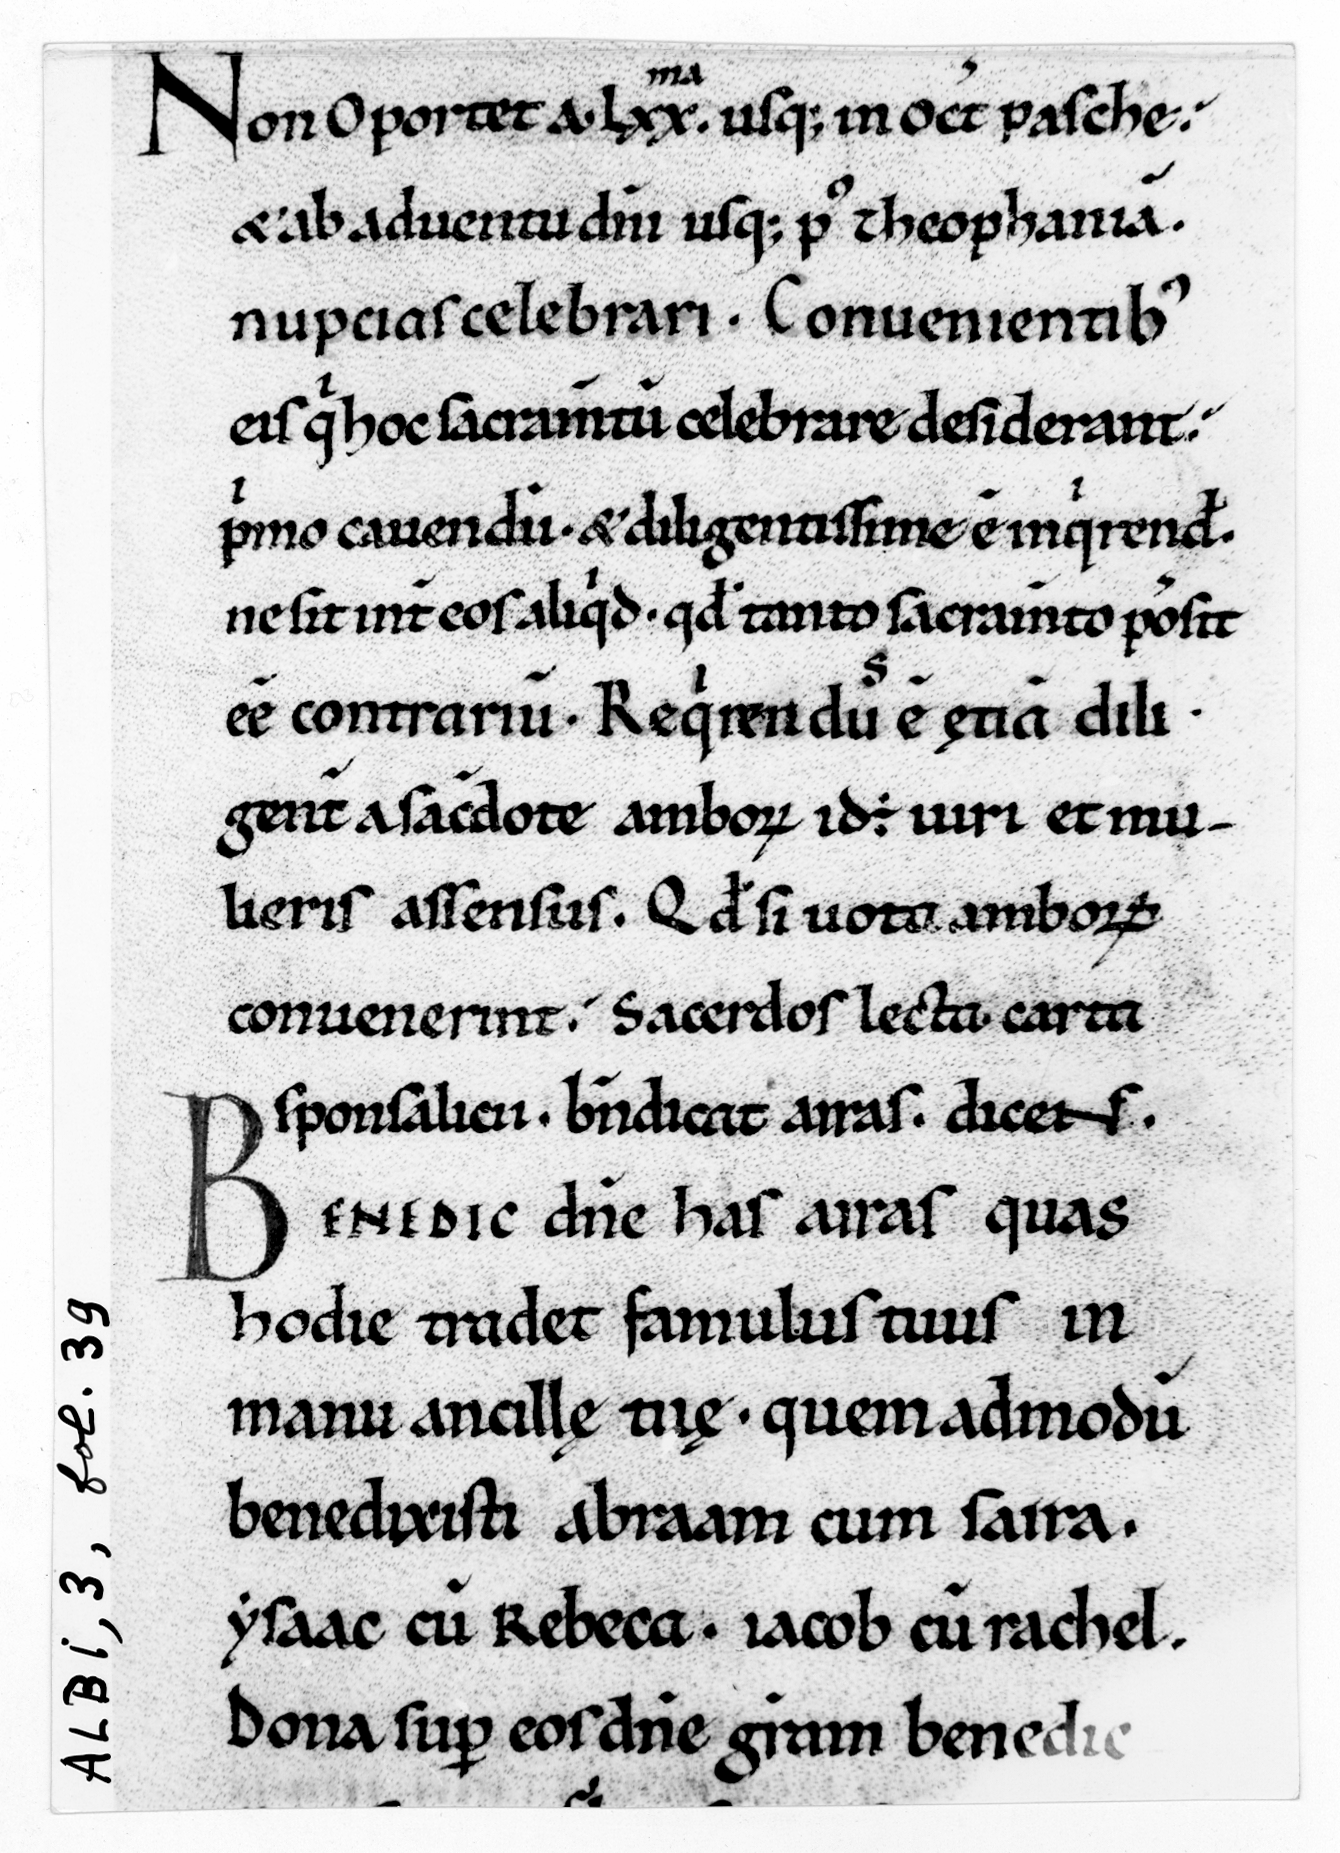 Non Oportet a. lxx.ᵐᵃ usq; in oct̄ pasche.
& ab aduentu dn̄i usq; pꝰ theophaniā.
nupcias celebrari. Conuenientibꝰ
eis qⁱ hoc sacram̄tū celebrare desiderant.
pⁱmo cauendū. & diligentissime ē inqⁱrend̄.
ne sit int̄ eos aliqⁱd. qd̄ tanto sacram̄to posit
eē contrariū. Reqⁱrendūˢ ē ętiā dili
gent̄ a sac̄dote amboꝝ id÷ uiri et mu-
lieris assensus. Qd̄ si uota amboꝝ
conuenerint. Sacerdos lecta carta
sponsalicii. bn̄dicat arras. dicens.
BENEDIC dn̄e has arras quas
hodie tradet famulus tuus in
manu ancillę tuę. quem admodū
benedixisti abraam cum sarra.
ẏsaac cū Rebeca. iacob cū rachel.
Dona suꝑ eos dn̄e gr̄am benedic
ALBI, 3, fol. 39